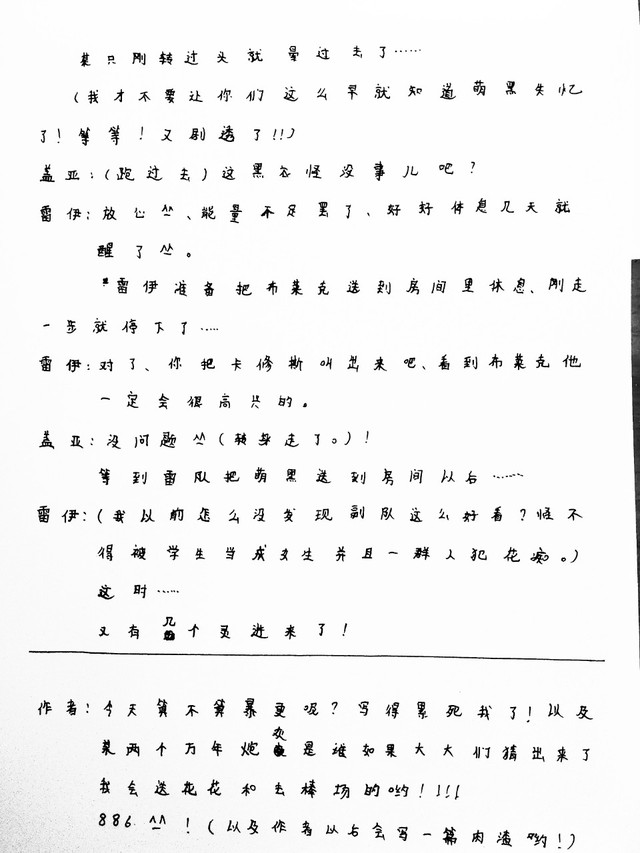 某只刚转过头就晕过去了……
(我才不要让你们这么早就知道萌黑失忆
了!等等!又剧透了!!)
盖亚:(跑过去)这黑尔怪没事儿吧?
雷伊:放心^^、能量不足罢了、好好休息几天就
醒了^^。
*雷伊准备把布莱克送到房间里休息、刚走
一步就停下了……
雷伊:对了、你把卡修斯叫出来吧、看到布莱克他
一定会很高兴的。
盖亚:没问题^^(转身走了。)!
等到雷队把萌黑送到房间以后……
雷伊:(我以前怎么没发现副队这么好看?怪不
得被学生当成女生并且一群人犯花痴。)
这时……
又有几个灵进来了!
作者:今天算不算暴更呢?写得累死我了!以及
某两个万年炮灰是谁如果大大们猜出来了
我会送花花和去棒场的哟!!!!
886.^^!(以及作者以后会写一篇肉渣哟!)